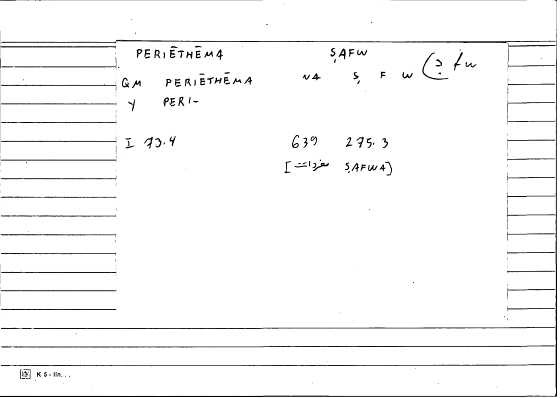 PERIĒTHĒMA ṢAFW
QM PERIĒTHĒMA NA Ṣ F W
Y PERI-
I 73.4 639 275.3
[مفردات ṢAFWA]
K 5 - lin...